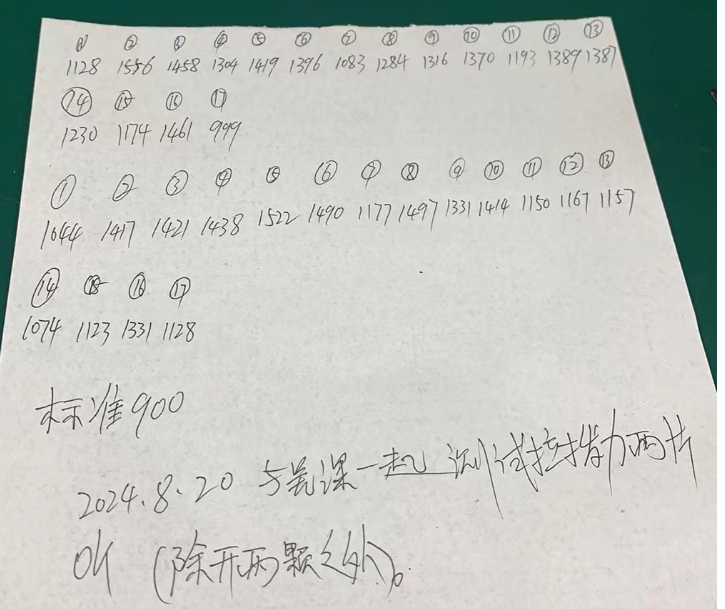 ① ② ③ ④ ⑤ ⑥ ⑦ ⑧ ⑨ ⑩ ⑪ ⑫ ⑬
1128 1556 1458 1304 1419 1396 1083 1284 1316 1370 1193 1389 1387
⑭ ⑮ ⑯ ⑰
1230 1174 1461 999
① ② ③ ④ ⑤ ⑥ ⑦ ⑧ ⑨ ⑩ ⑪ ⑫ ⑬
1044 1417 1421 1438 1522 1490 1177 1497 1331 1414 1150 1167 1157
⑭ ⑮ ⑯ ⑰
1074 1123 1331 1128
标准900
2024.8.20 与吴课一起测试拉拨力两片
OK (除开两颗之外)。